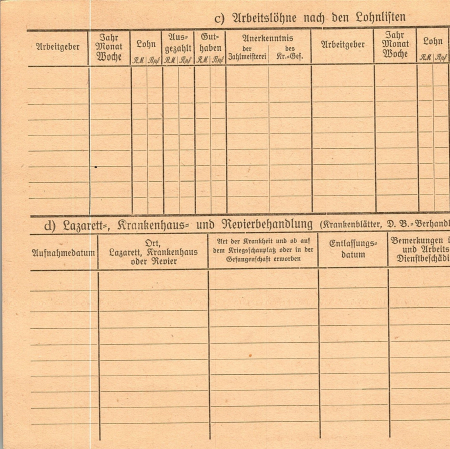 c) Arbeitslöhne nach den Lohnlisten
Arbeitgeber
Jahr
Monat
Woche
Lohn
RM Rpf
Aus-
gezahlt
RM Rpf
Gut-
haben
RM Rpf
Anerkenntnis
der
Zahlmeisterei
des
Kr.-Gef.
Arbeitgeber
Jahr
Monat
Woche
Lohn
RM Rpf
d) Lazarett-, Krankenhaus- und Revierbehandlung (Krankenblätter, D. B.-Verhandl
Aufnahmedatum
Ort,
Lazarett, Krankenhaus
oder Revier
Art der Krankheit und ob auf
dem Kriegsschauplatz oder in der
Gefangenschaft erworben
Entlassungs-
datum
Bemerkungen
und Arbeits
Dienstbeschädi